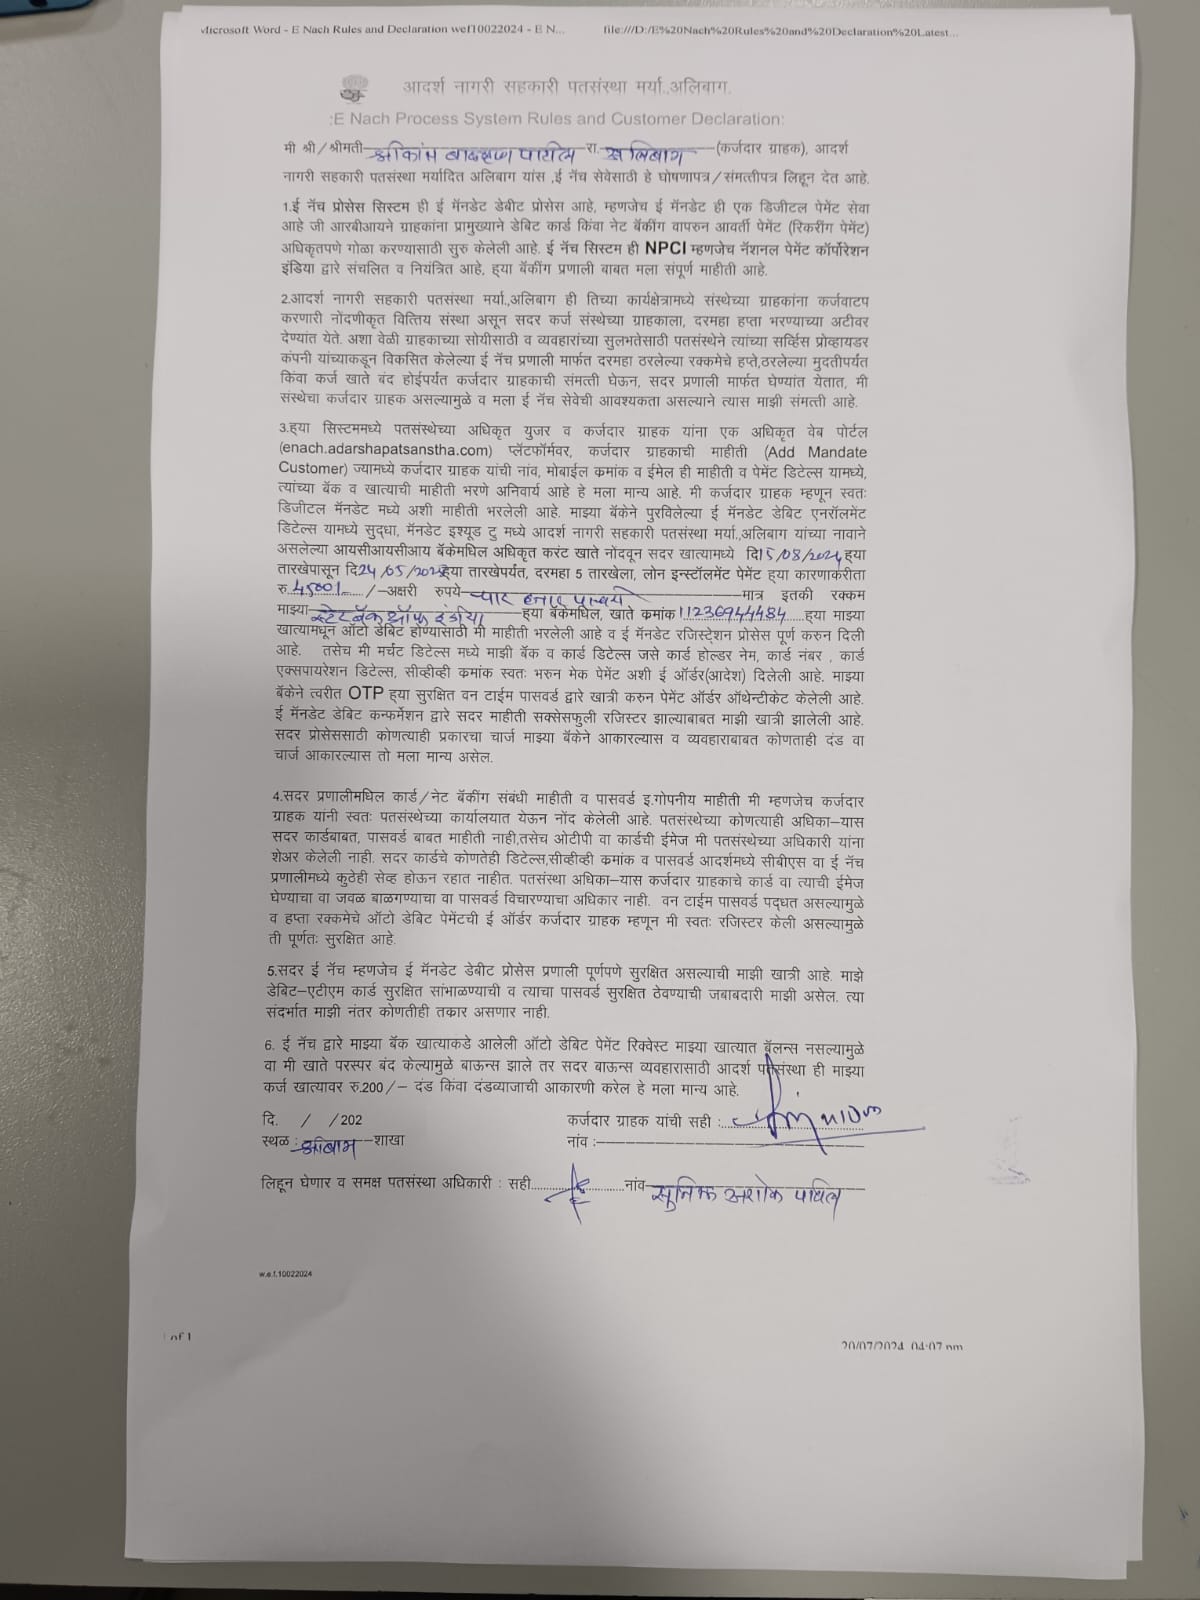 Microsoft Word - E Nach Rules and Declaration wef10022024 - E N... file:///D:/E%20Nach%20Rules%20and%20Declaration%20Latest...
आदर्श नागरी सहकारी पतसंस्था मर्या.,अलिबाग.
:E Nach Process System Rules and Customer Declaration:
मी श्री/श्रीमती श्रीकांत बाळकृष्ण पाटील रा. अलिबाग (कर्जदार ग्राहक), आदर्श
नागरी सहकारी पतसंस्था मर्यादित अलिबाग यांस ,ई नॅच सेवेसाठी हे घोषणापत्र/संमत्तीपत्र लिहून देत आहे.
1.ई नॅच प्रोसेस सिस्टम ही ई मॅनडेट डेबीट प्रोसेस आहे, म्हणजेच ई मॅनडेट ही एक डिजीटल पेमेंट सेवा
आहे जी आरबीआयने ग्राहकांना प्रामुख्याने डेबिट कार्ड किंवा नेट बॅकींग वापरुन आवर्ती पेमेंट (रिकरींग पेमेंट)
अधिकृतपणे गोळा करण्यासाठी सुरु केलेली आहे. ई नॅच सिस्टम ही NPCI म्हणजेच नॅशनल पेमेंट कॉर्पोरेशन
इंडिया द्वारे संचलित व नियंत्रित आहे, ह्या बॅकींग प्रणाली बाबत मला संपूर्ण माहीती आहे.
2.आदर्श नागरी सहकारी पतसंस्था मर्या.,अलिबाग ही तिच्या कार्यक्षेत्रामध्ये संस्थेच्या ग्राहकांना कर्जवाटप
करणारी नोंदणीकृत वित्तिय संस्था असून सदर कर्ज संस्थेच्या ग्राहकाला, दरमहा हप्ता भरण्याच्या अटीवर
देण्यांत येते. अशा वेळी ग्राहकाच्या सोयीसाठी व व्यवहारांच्या सुलभतेसाठी पतसंस्थेने त्यांच्या सर्व्हिस प्रोव्हायडर
कंपनी यांच्याकडून विकसित केलेल्या ई नॅच प्रणाली मार्फत दरमहा ठरलेल्या रक्कमेचे हप्ते,ठरलेल्या मुदतीपर्यंत
किंवा कर्ज खाते बंद होईपर्यंत कर्जदार ग्राहकाची संमत्ती घेऊन, सदर प्रणाली मार्फत घेण्यांत येतात, मी
संस्थेचा कर्जदार ग्राहक असल्यामुळे व मला ई नॅच सेवेची आवश्यकता असल्याने त्यास माझी संमत्ती आहे.
3.ह्या सिस्टममध्ये पतसंस्थेच्या अधिकृत युजर व कर्जदार ग्राहक यांना एक अधिकृत वेब पोर्टल
(enach.adarshapatsanstha.com) प्लॅटफॉर्मवर, कर्जदार ग्राहकाची माहीती (Add Mandate
Customer) ज्यामध्ये कर्जदार ग्राहक यांची नांव, मोबाईल क्रमांक व ईमेल ही माहीती व पेमेंट डिटेल्स यामध्ये,
त्यांच्या बॅक व खात्याची माहीती भरणे अनिवार्य आहे हे मला मान्य आहे. मी कर्जदार ग्राहक म्हणून स्वतः
डिजीटल मॅनडेट मध्ये अशी माहीती भरलेली आहे. माझ्या बॅकेने पुरविलेल्या ई मॅनडेट डेबिट एनरॉलमेंट
डिटेल्स यामध्ये सुद्धा, मॅनडेट इश्यूड टु मध्ये आदर्श नागरी सहकारी पतसंस्था मर्या.,अलिबाग यांच्या नावाने
असलेल्या आयसीआयसीआय बॅकेमधिल अधिकृत करंट खाते नोंदवून सदर खात्यामध्ये दि15/08/2024 ह्या
तारखेपासून दि24/05/2028 ह्या तारखेपर्यंत, दरमहा 5 तारखेला, लोन इन्स्टॉलमेंट पेमेंट ह्या कारणाकरीता
रु. 4500/- /-अक्षरी रुपये चार हजार पाचशे मात्र इतकी रक्कम
माझ्या स्टेट बँक ऑफ इंडिया ह्या बॅकेमधिल, खाते क्रमांक 11236944484 ह्या माझ्या
खात्यामधून ऑटो डेबिट होण्यासाठी मी माहीती भरलेली आहे व ई मॅनडेट रजिस्ट्रेशन प्रोसेस पूर्ण करुन दिली
आहे. तसेच मी मर्चंट डिटेल्स मध्ये माझी बॅक व कार्ड डिटेल्स जसे कार्ड होल्डर नेम, कार्ड नंबर , कार्ड
एक्सपायरेशन डिटेल्स, सीव्हीव्ही क्रमांक स्वतः भरुन मेक पेमेंट अशी ई ऑर्डर(आदेश) दिलेली आहे. माझ्या
बॅकेने त्वरीत OTP ह्या सुरक्षित वन टाईम पासवर्ड द्वारे खात्री करुन पेमेंट ऑर्डर ऑथेन्टीकेट केलेली आहे.
ई मॅनडेट डेबिट कन्फर्मेशन द्वारे सदर माहीती सक्सेसफुली रजिस्टर झाल्याबाबत माझी खात्री झालेली आहे.
सदर प्रोसेससाठी कोणत्याही प्रकारचा चार्ज माझ्या बॅकेने आकारल्यास व व्यवहाराबाबत कोणताही दंड वा
चार्ज आकारल्यास तो मला मान्य असेल.
4.सदर प्रणालीमधिल कार्ड/नेट बॅकींग संबंधी माहीती व पासवर्ड इ.गोपनीय माहीती मी म्हणजेच कर्जदार
ग्राहक यांनी स्वतः पतसंस्थेच्या कार्यालयात येऊन नोंद केलेली आहे. पतसंस्थेच्या कोणत्याही अधिका–यास
सदर कार्डबाबत, पासवर्ड बाबत माहीती नाही,तसेच ओटीपी वा कार्डची ईमेज मी पतसंस्थेच्या अधिकारी यांना
शेअर केलेली नाही. सदर कार्डचे कोणतेही डिटेल्स,सीव्हीव्ही क्रमांक व पासवर्ड आदर्शमध्ये सीबीएस वा ई नॅच
प्रणालीमध्ये कुठेही सेव्ह होऊन रहात नाहीत. पतसंस्था अधिका–यास कर्जदार ग्राहकाचे कार्ड वा त्याची ईमेज
घेण्याचा वा जवळ बाळगण्याचा वा पासवर्ड विचारण्याचा अधिकार नाही. वन टाईम पासवर्ड पद्धत असल्यामुळे
व हप्ता रक्कमेचे ऑटो डेबिट पेमेंटची ई ऑर्डर कर्जदार ग्राहक म्हणून मी स्वतः रजिस्टर केली असल्यामुळे
ती पूर्णतः सुरक्षित आहे.
5.सदर ई नॅच म्हणजेच ई मॅनडेट डेबीट प्रोसेस प्रणाली पूर्णपणे सुरक्षित असल्याची माझी खात्री आहे. माझे
डेबिट–एटीएम कार्ड सुरक्षित सांभाळण्याची व त्याचा पासवर्ड सुरक्षित ठेवण्याची जबाबदारी माझी असेल. त्या
संदर्भात माझी नंतर कोणतीही तक्रार असणार नाही.
6. ई नॅच द्वारे माझ्या बॅक खात्याकडे आलेली ऑटो डेबिट पेमेंट रिक्वेस्ट माझ्या खात्यात बॅलन्स नसल्यामुळे
वा मी खाते परस्पर बंद केल्यामुळे बाऊन्स झाले तर सदर बाऊन्स व्यवहारासाठी आदर्श पतसंस्था ही माझ्या
कर्ज खात्यावर रु.200/– दंड किंवा दंडव्याजाची आकारणी करेल हे मला मान्य आहे.
दि. / /202 कर्जदार ग्राहक यांची सही :
स्थळ : श्रीबाग शाखा नांव :
लिहून घेणार व समक्ष पतसंस्था अधिकारी : सही नांव सुनिल अशोक पाटील
w.e.f.10022024
1 of 1 20/07/2024, 04:07 pm